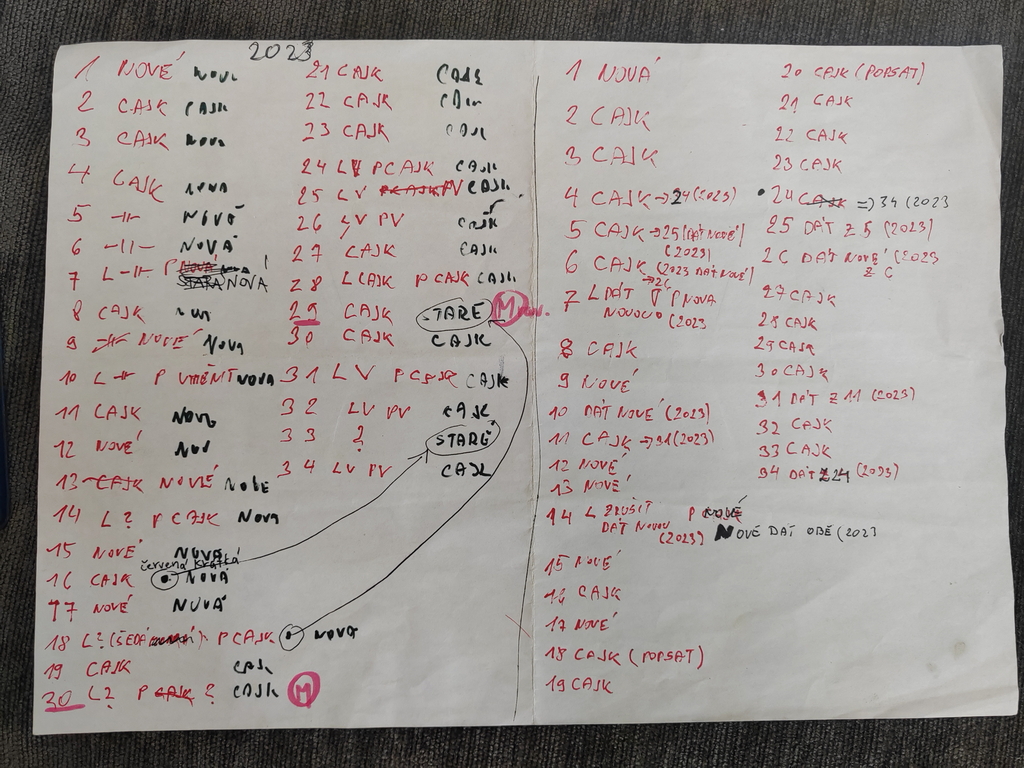 2023
1 NOVÉ
2 CAJK CAJK
3 CAJK NOVA
4 CAJK NOVA
5 -||- NOVÁ
6 -||- NOVÁ
7 L -||- P NOVÉ STARA NOVA
8 CAJK
9 NOVÉ NOVA
10 L -||- P VMĚNIT NOVA
11 CAJK NOVÁ
12 NOVÉ NOV
13 CAJK NOVÉ NOVÉ
14 L ? P CAJK NOVA
15 NOVÉ NOVÉ
červená krátká
16 CAJK NOVÁ
17 NOVÉ NOVÁ
18 L? (ŠEDÁ) P CAJK NOVA
19 CAJK CAJK
30 L? P CAJK ? CAJK M
21 CAJK CAJK
22 CAJK
23 CAJK CAJK
24 LV P CAJK CAJK
25 LV PCAJK PV CAJK
26 LV PV CAJK
27 CAJK CAJK
28 L CAJK P CAJK CAJK
29 CAJK STARÉ M
30 CAJK CAJK
31 LV P CAJK CAJK
32 LV PV CAJK
33 ? STARÉ
34 LV PV CAJK
1 NOVÁ
2 CAJK
3 CAJK
4 CAJK → 24 (2023)
5 CAJK → 25 (DÁT NOVÉ) (2023)
6 CAJK (2023 DÁT NOVÉ)
→ 26
7 L DÁT P NOVA
NOVOU (2023
8 CAJK
9 NOVÉ
10 DÁT NOVÉ (2023)
11 CAJK → 31 (2023)
12 NOVÉ
13 NOVÉ
14 L ZRUŠIT P NOVÉ
DÁT NOVOU
(2023) NOVÉ DÁT OBĚ (2023
15 NOVÉ
16 CAJK
17 NOVÉ
18 CAJK (POPSAT)
19 CAJK
20 CAJK (POPSAT)
21 CAJK
22 CAJK
23 CAJK
24 CAJK => 34 (2023
25 DÁT Z 5 (2023)
26 DÁT NOVÉ (2023
Z 6
27 CAJK
28 CAJK
29 CAJK
30 CAJK
31 DÁT Z 11 (2023)
32 CAJK
33 CAJK
34 DÁT Z 24 (2023)